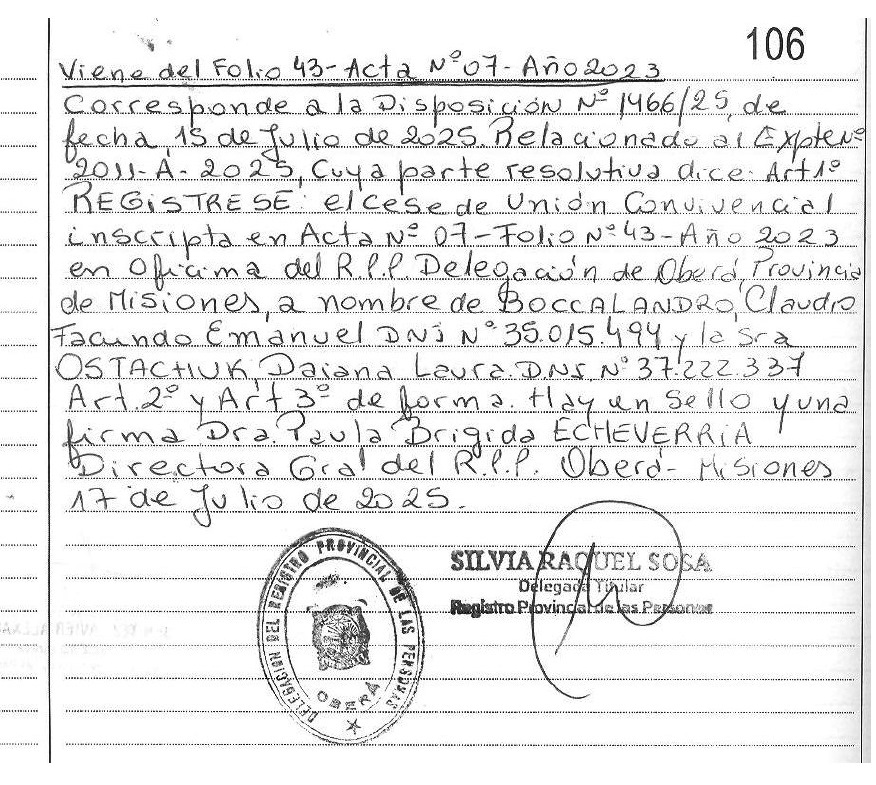 106
Viene del Folio 43-Acta Nº 07-Año 2023
Corresponde a la Disposición Nº 1466/25, de
fecha, 15 de Julio de 2025. Relacionado al Expte Nº
2011-A-2025, Cuya parte resolutiva dice: Art 1º
REGISTRESE: el cese de Unión Convivencial
inscripta en Acta Nº 07-Folio Nº 43-Año 2023
en Oficima del R.P.P. Delegación de Oberá, Provincia
de Misiones, a nombre de BOCCALANDRO, Claudio
Facundo Emanuel DNI Nº 35.015.494 y la Sra
OSTACHUK, Daiana Laura. DNI Nº 37.222.337
Art. 2º y Art 3º de forma. Hay un Sello y una
firma Dra. Paula Brigida ECHEVERRIA
Directora Gral del R.P.P. Oberá-Misiones
17 de Julio de 2025.
DELEGACION DEL REGISTRO PROVINCIAL DE LAS PERSONAS
OBERÁ
SILVIA RAQUEL SOSA
Delegada Titular
Registro Provincial de las Personas